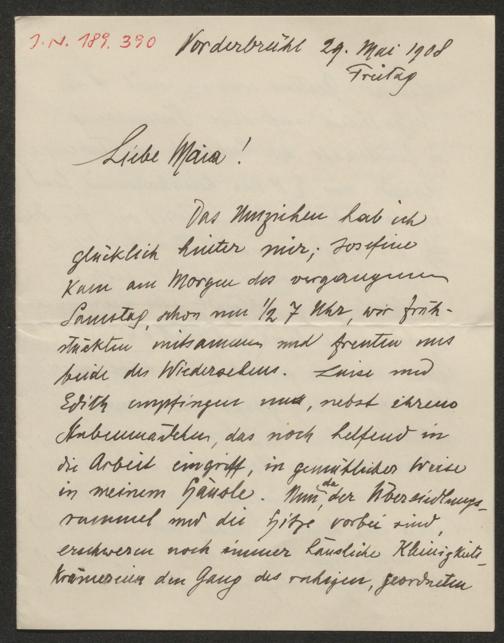 I. N. 189.390
Vorderbrühl 29. Mai 1908
Freitag
Liebe Maia!
Das Umziehen hab ich
glücklich hinter mir; Josefine
kam am Morgen des vergangenen
Samstag, schon um 1/2 7 Uhr, wir früh-
stückten mitsammen und freuten uns
beide des Wiedersehens. Luise und
Edith empfingen uns, nebst ihrem
Stubenmädchen, das noch helfend in
die Arbeit eingriff, in gemütlicher Weise
in meinem Häusle. Nun, da der Übersiedlungs-
rummel und die Hitze vorbei sind,
erschweren noch immer häusliche Kleinigkeits-
krämereien den Gang des ruhigen, geordneten